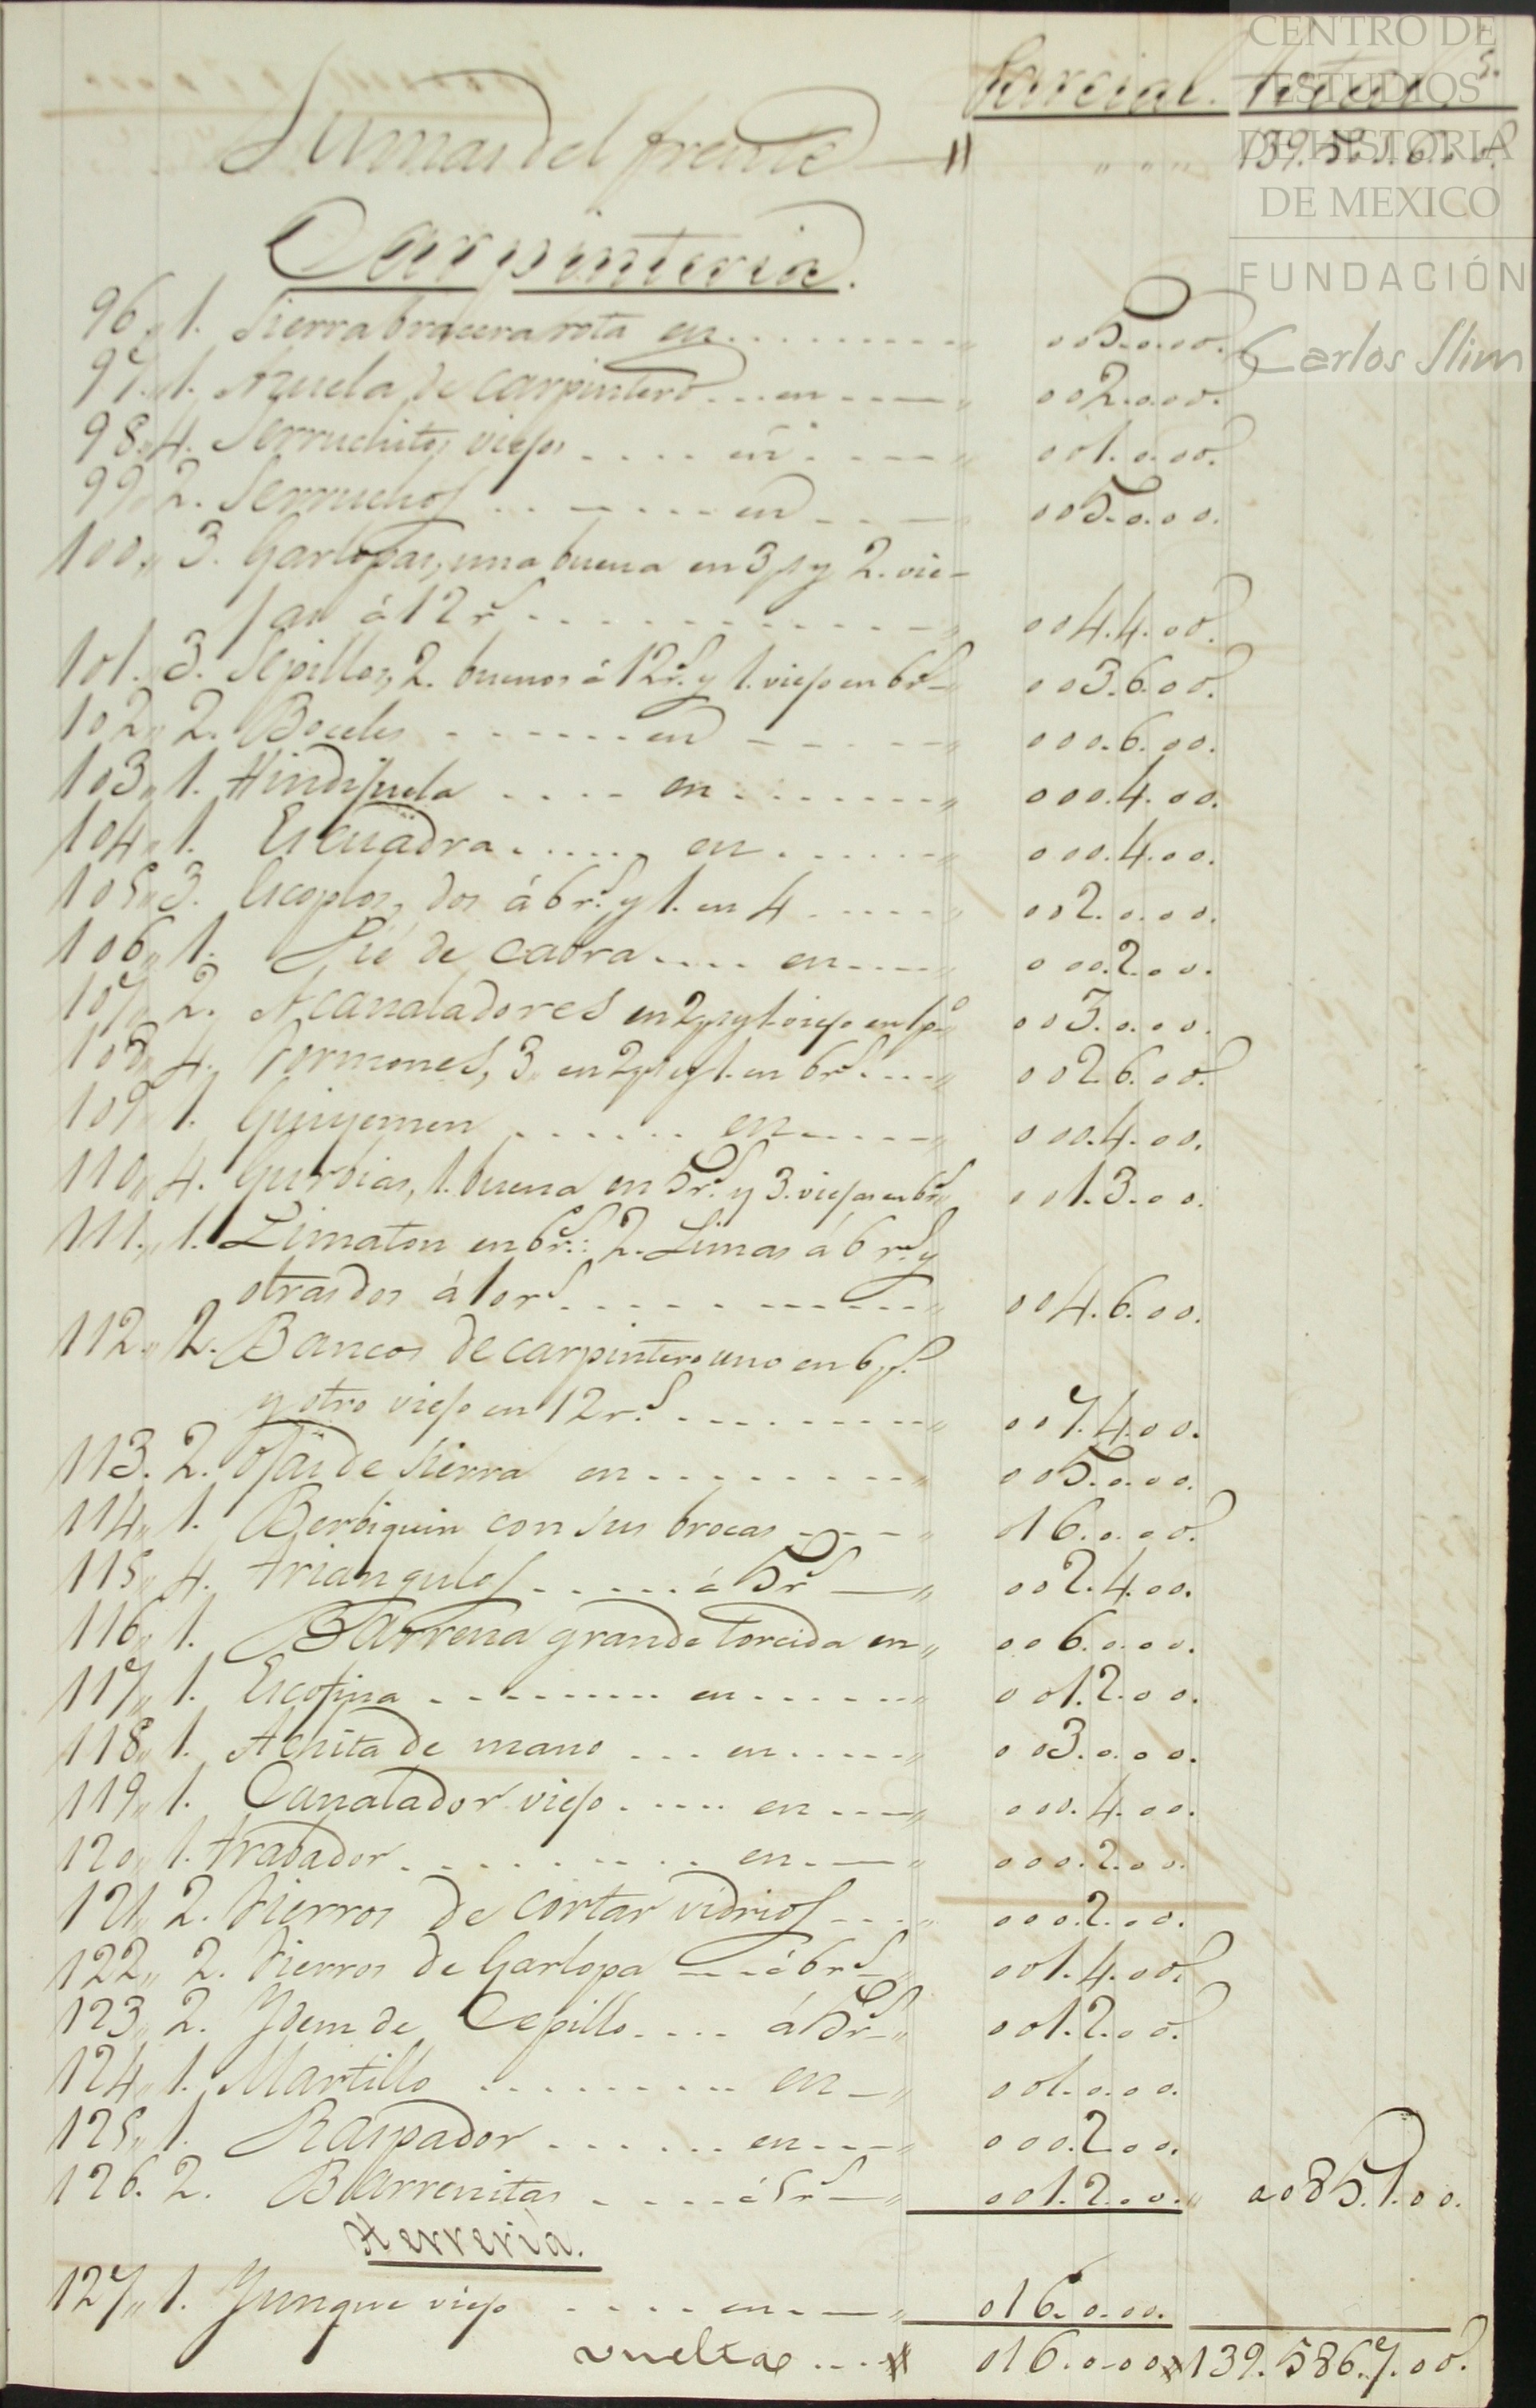 Parcial. Total.
5.
CENTRO DE
ESTUDIOS
DE HISTORIA
DE MEXICO
FUNDACIÓN
Carlos Slim
Sumas del frente — " " " " 139.501.6.00.
Carpinteria.
96 " 1. Sierra bracera rota en . . . . . . . . . " 005.0.00.
97 " 1. Azuela de carpintero . . . en . . . — " 002.0.00.
98 " 4. Serruchitos viejos . . . . en . . . . " 001.0.00.
99 " 2. Serruchos . . . . . . . en . . . — " 005.0.00.
100 " 3. Garlopas, una buena en 3 ps y 2. vie-
jas á 12 rs. . . . . . . . . . . . . " 004.4.00.
101 " 3. Sepillos, 2. buenos á 12 rs. y 1. viejo en 6 rs. — " 003.6.00.
102 " 2. Boceles . . . . . . . en . . . . . " 000.6.00.
103 " 1. Hindijuela . . . . en . . . . . . . " 000.4.00.
104 " 1. Escuadra . . . . . en . . . . . . " 000.4.00.
105 " 3. Escoplos, dos á 6 rs. y 1. en 4 . . . . . " 002.0.00.
106 " 1. Pié de cabra . . . . en . . . . " 000.2.00.
107 " 2. Acanaladores en 2 ps y 1. viejo en 1 po. " 003.0.00.
108 " 4. Formones, 3 en 2 ps y 1. en 6 rs. . . . " 002.6.00.
109 " 1. Guiyemen . . . . . . en . . . . . " 000.4.00.
110 " 4. Gurbias, 1. buena en 5 rs. y 3. viejas en 6 rs. " 001.3.00.
111. " 1. Limaton en 6 rs.: 2. Limas á 6 rs. y
otras dos á 10 rs. . . . . . . . . . . " 004.6.00.
112. " 2. Bancos de carpintero uno en 6 ps.
y otro viejo en 12 rs. . . . . . . . . . " 007.4.00.
113. 2. Ojas de Sierra en . . . . . . . . " 005.0.00.
114 " 1. Berbiquin con sus brocas . . . . " 016.0.00.
115 " 4. triangulos . . . . . á 5 rs — " 002.4.00.
116 " 1. Barrena grande torcida en " 006.0.00.
117 " 1. Escofina . . . . . . . . . en . . . . . . " 001.2.00.
118 " 1. Achita de mano . . . en . . . . . " 003.0.00.
119 " 1. Canalador viejo . . . . . en . . . — " 000.4.00.
120 " 1. trabador . . . . . . . . . en . — " 000.2.00.
121 " 2. Fierros de cortar vidrios . . . . " 000.2.00.
122 " 2. Fierros de Garlopa . . . á 6 rs. — " 001.4.00.
123 " 2. Ydem de Cepillo . . . . á 5 rs. — " 001.2.00.
124 " 1. Martillo . . . . . . . . . en — " 001.0.00.
125 " 1. Raspador . . . . . . en . . . — " 000.2.00.
126. 2. Barrenitas . . . . . á 5 rs — " 001.2.00. " 0085.1.00.
Herrería.
127 " 1. Yunque viejo . . . . . en . — " 016.0.00.
vuelta . . . 016.0.00 139.586.7.00.